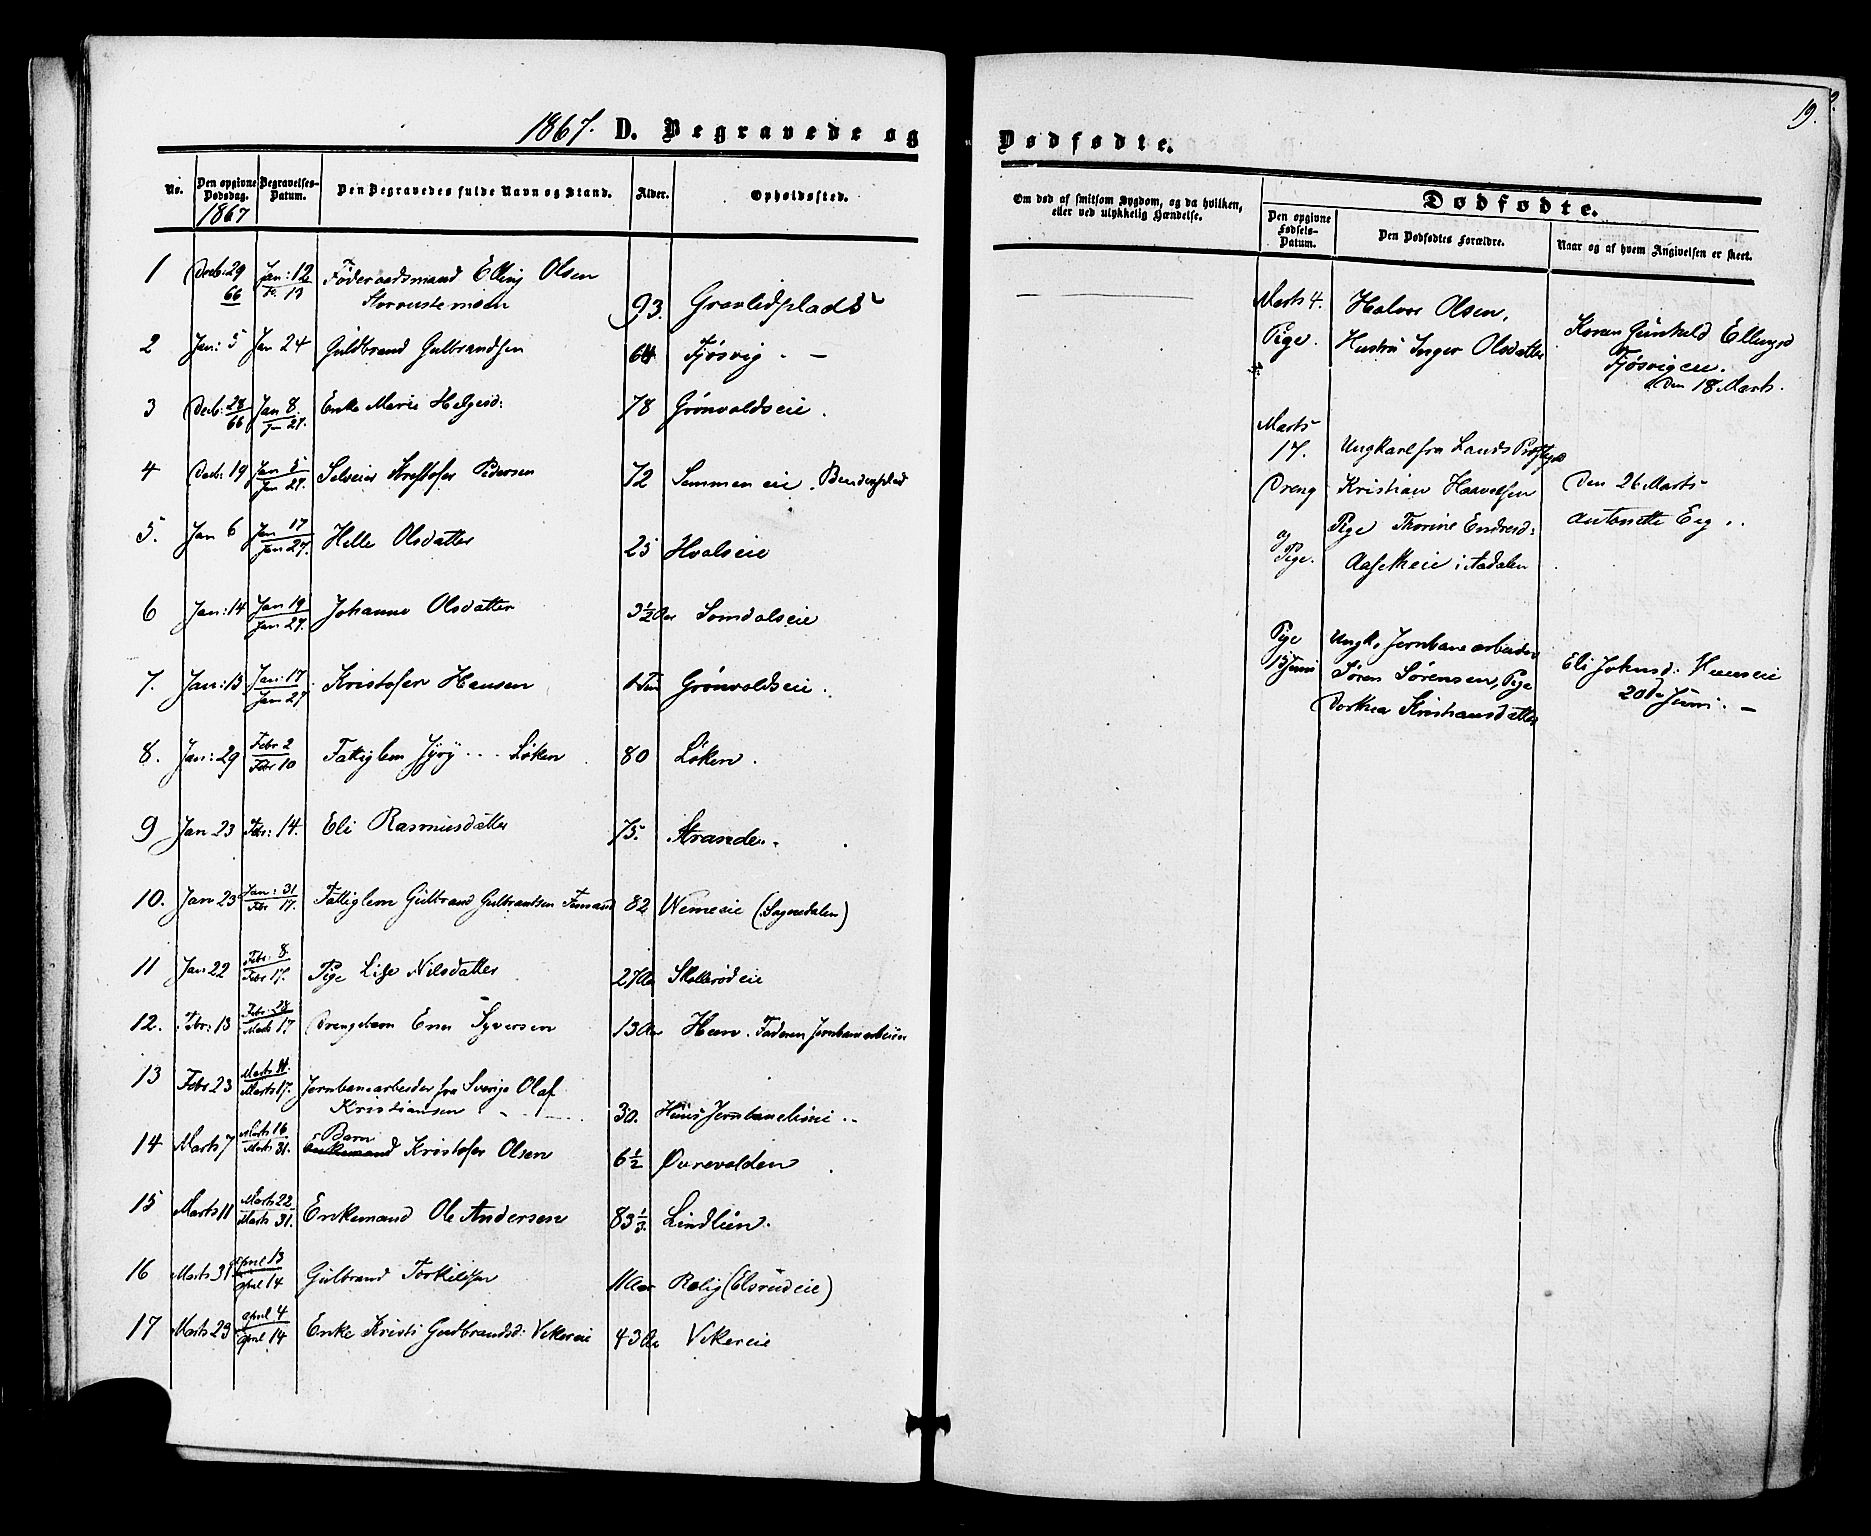 1867. D. Begravede og
No. Den opgivne Dødsdag. 1867 Begravelses-Datum. Den Begravedes fulde Navn og Stand. Alder. Opholdssted.
1 Decb: 29 66 Jan: 12 13 Føderaadsmand Elling Olsen
93. Gravlidplads
2 Jan: 5 Jan 24 Guldbrand Gulbrandsen 64 Tjøsvig - -
3 Decb: 28 66 Jan 8. Jan 27. Enke Marie Helgesd: 78 Grønvoldseie.
4 Decb: 19 Jan 5 Jan 27. Selveier Kristofer Pedersen 72 Semmen eie.
5. Jan 6 Jan 17 Jan 27. Helle Olsdatter 25 Hvalseie
6 Jan: 14 Jan 19 Jan 27. Johanne Olsdatter 3½ Aar Somdalseie
7. Jan: 13 Jan: 17 Jan 27 Kristofer Hansen Grønvoldseie.
8. Jan: 29 Febr 2 Febr 10 Fattiglem Løken 80 Løken.
9 Jan 23 Febr: 14. Eli Rasmusdatter 75. Strande..
10. Jan 23 Jan: 31 Febr 17. Fattiglem Gulbrand Gulbrandsen 82 Wemeeie (Sognedalen)
11 Jan 22 Febr. 8. Febr 17. Pige Lise Nilsdatter 27 Aar Skollerødeie
12. Febr: 13 Febr: 28 Marts 17 Drengebarn Syversen 13 Aar Heen. Faderen Jernbanearbeider
13 Febr 23 Marts 11. Marts 17. Jernbanearbeider fra Sverige Olaf
Kristiansen 30. Jernbanelinie..
14 Marts 7 Marts 16 Marts 31. Barn Enkemand Kristofer Olsen 6½ Øvrevolden.
15 Marts 11 Marts 22. Marts 31. Enkemand Ole Andersen 83⅓. Lindlien.
16 Marts 31 April 13 April 14 Gulbrand Torkildsen 11 Aar Rolig (Elsrudeie)
17 Marts 23 April 4 April 14 Enke Kristi Gudbrandsd: Vekereie 43 Aar Vekereie
Dødfødte.
19.
Om død af smitsom Sygdom, og da hvilken, eller ved ulykkelig Hændelse.
Dødfødte.
Den opgivne Fødsels-Datum. Den Dødfødtes Forældre. Naar og af hvem Angivelsen er skeet.
Marts 4. Halvor Olsen, Karen Gunhild Ellingsd
Pige. Hustru Inger Olsdatter Tjøsvigeie.
Den 18 Marts.
Marts
17. Ungkarl fra Lands
Dreng Kristian Haavelsen Den 26 Marts
og Pige Thorine Endresd: Antonette Eeg..
Pige. i Aadalen
Pige Ungk. Jernbanearbeider
13 Juni Søren Sørensen, Pige Eli Johnsd:
Dorthea Kristiansdatter 20de Juni. -